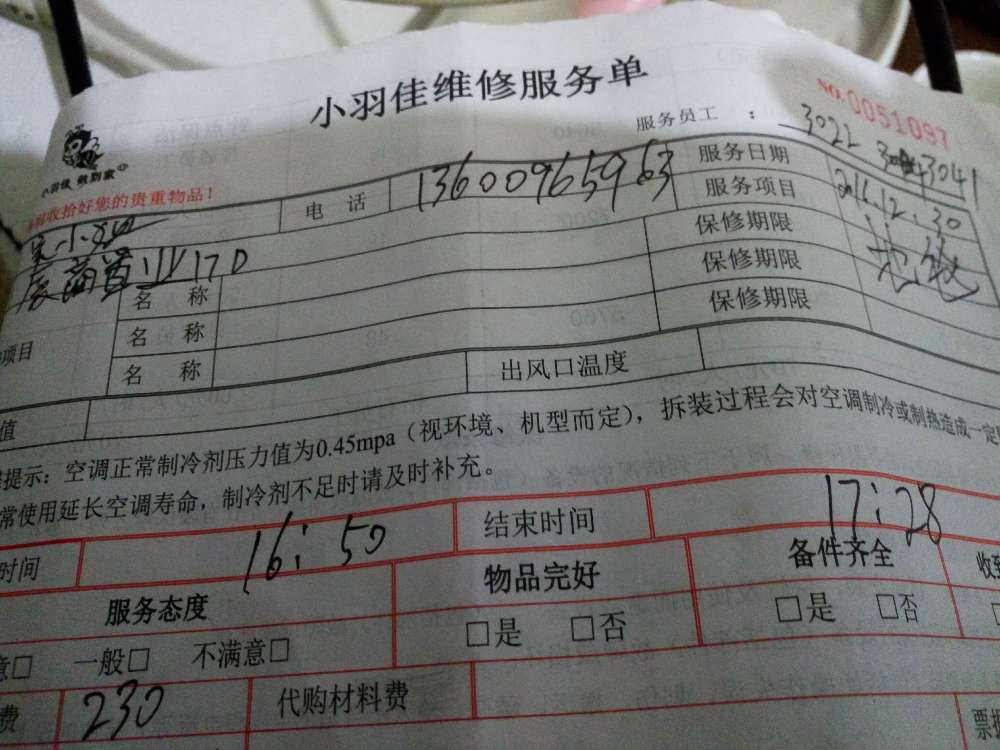 小羽佳维修服务单
NO.0051097
小羽佳 做到家
服务员工 : 3022 3041
收拾好您的贵重物品!
电 话 13600965963 服务日期 2016.12.30
服务项目
17D 保修期限
名 称 保修期限
项目 名 称 保修期限
名 称
值 出风口温度
提示:空调正常制冷剂压力值为0.45mpa(视环境、机型而定),拆装过程会对空调制冷或制热造成一定
常使用延长空调寿命,制冷剂不足时请及时补充。
时间 16:50 结束时间 17:28
服务态度 物品完好 备件齐全 收
意□ 一般□ 不满意□ □是 □否 □是 □否
费 230 代购材料费 票据